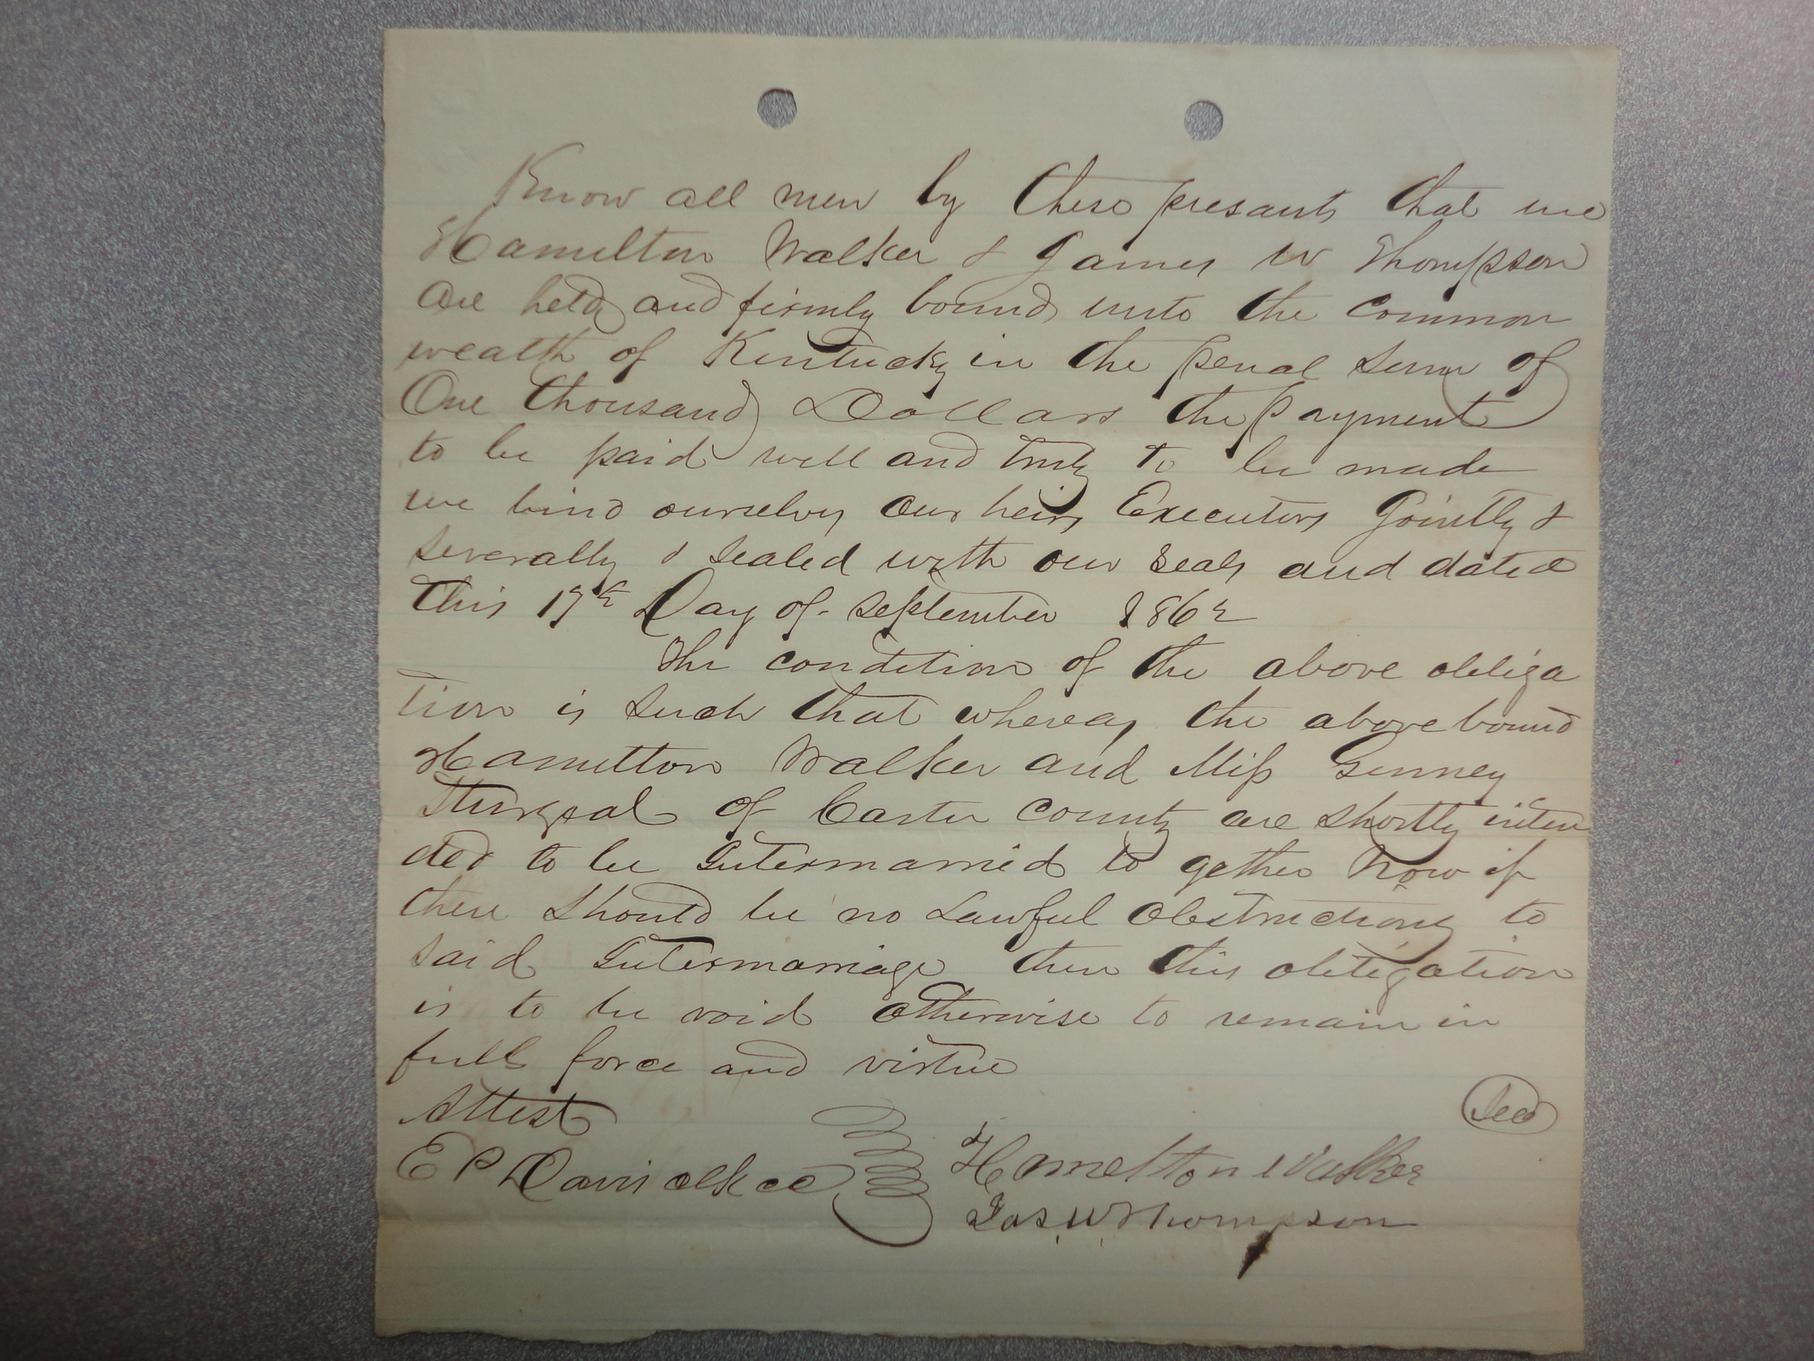 Know all men by these presants that we
Hamelton Walker & James W Thompson
are held and firmly bound unto the common
wealth of Kentucky in the penal sum of
One thousand Dollars the payment
to be paid well and truly to be made
we bind ourselves our heirs Executors Jointly &
severally & sealed with our seals and dated
this 17th Day of September 1862
The condition of the above obliga
tion is such that whereas the above bound
Hamelton Walker and Miss Genney
of Carter county are shortly inten
ded to be Intermarried to gether Now if
there should be no Lawful obstructions to
said Intermarriage then this obligation
is to be void otherwise to remain in
full force and virtue
Attest
Seal
E P Davis clk cc Hamelton Walker
Jas, W, Thompson